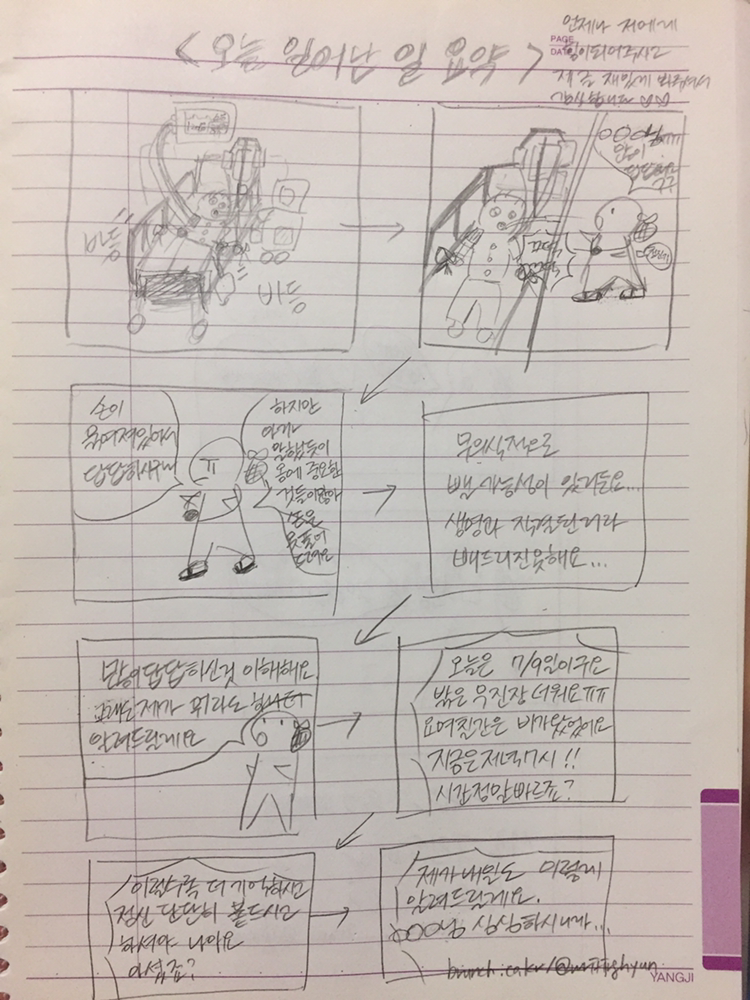 < 오늘 일어난 일 요약 >
언제나 저에게
PAGE
DATE
힘이되어주시고
버둥
버둥
OOO님ㅠㅠ
많이
손이
묶여져있어서
답답하시구나
ㅠ
하지만
아까
말했듯이
몸에 중요한
것들이많아
손은
못풀어
드려요
무의식적으로
뺄 가능성이 있거든요...
생명과 직결된거라
빼드리진못해요...
많이답답하신것 이해해요
그래도 제가 뭐라도
알려드릴게요
오늘은 7/9일이구요
밖은 무진장 더워요ㅠㅠ
요며칠간은 비가왔었어요
지금은저녁7시!!
시간정말빠르죠?
이럴수록 더 기억하시고
정신 단단히 붙드시고
하셔야 나아요
아셨죠?
제가내일도 이렇게
알려드릴게요.
OOO님 심심하시니까...
YANGJI